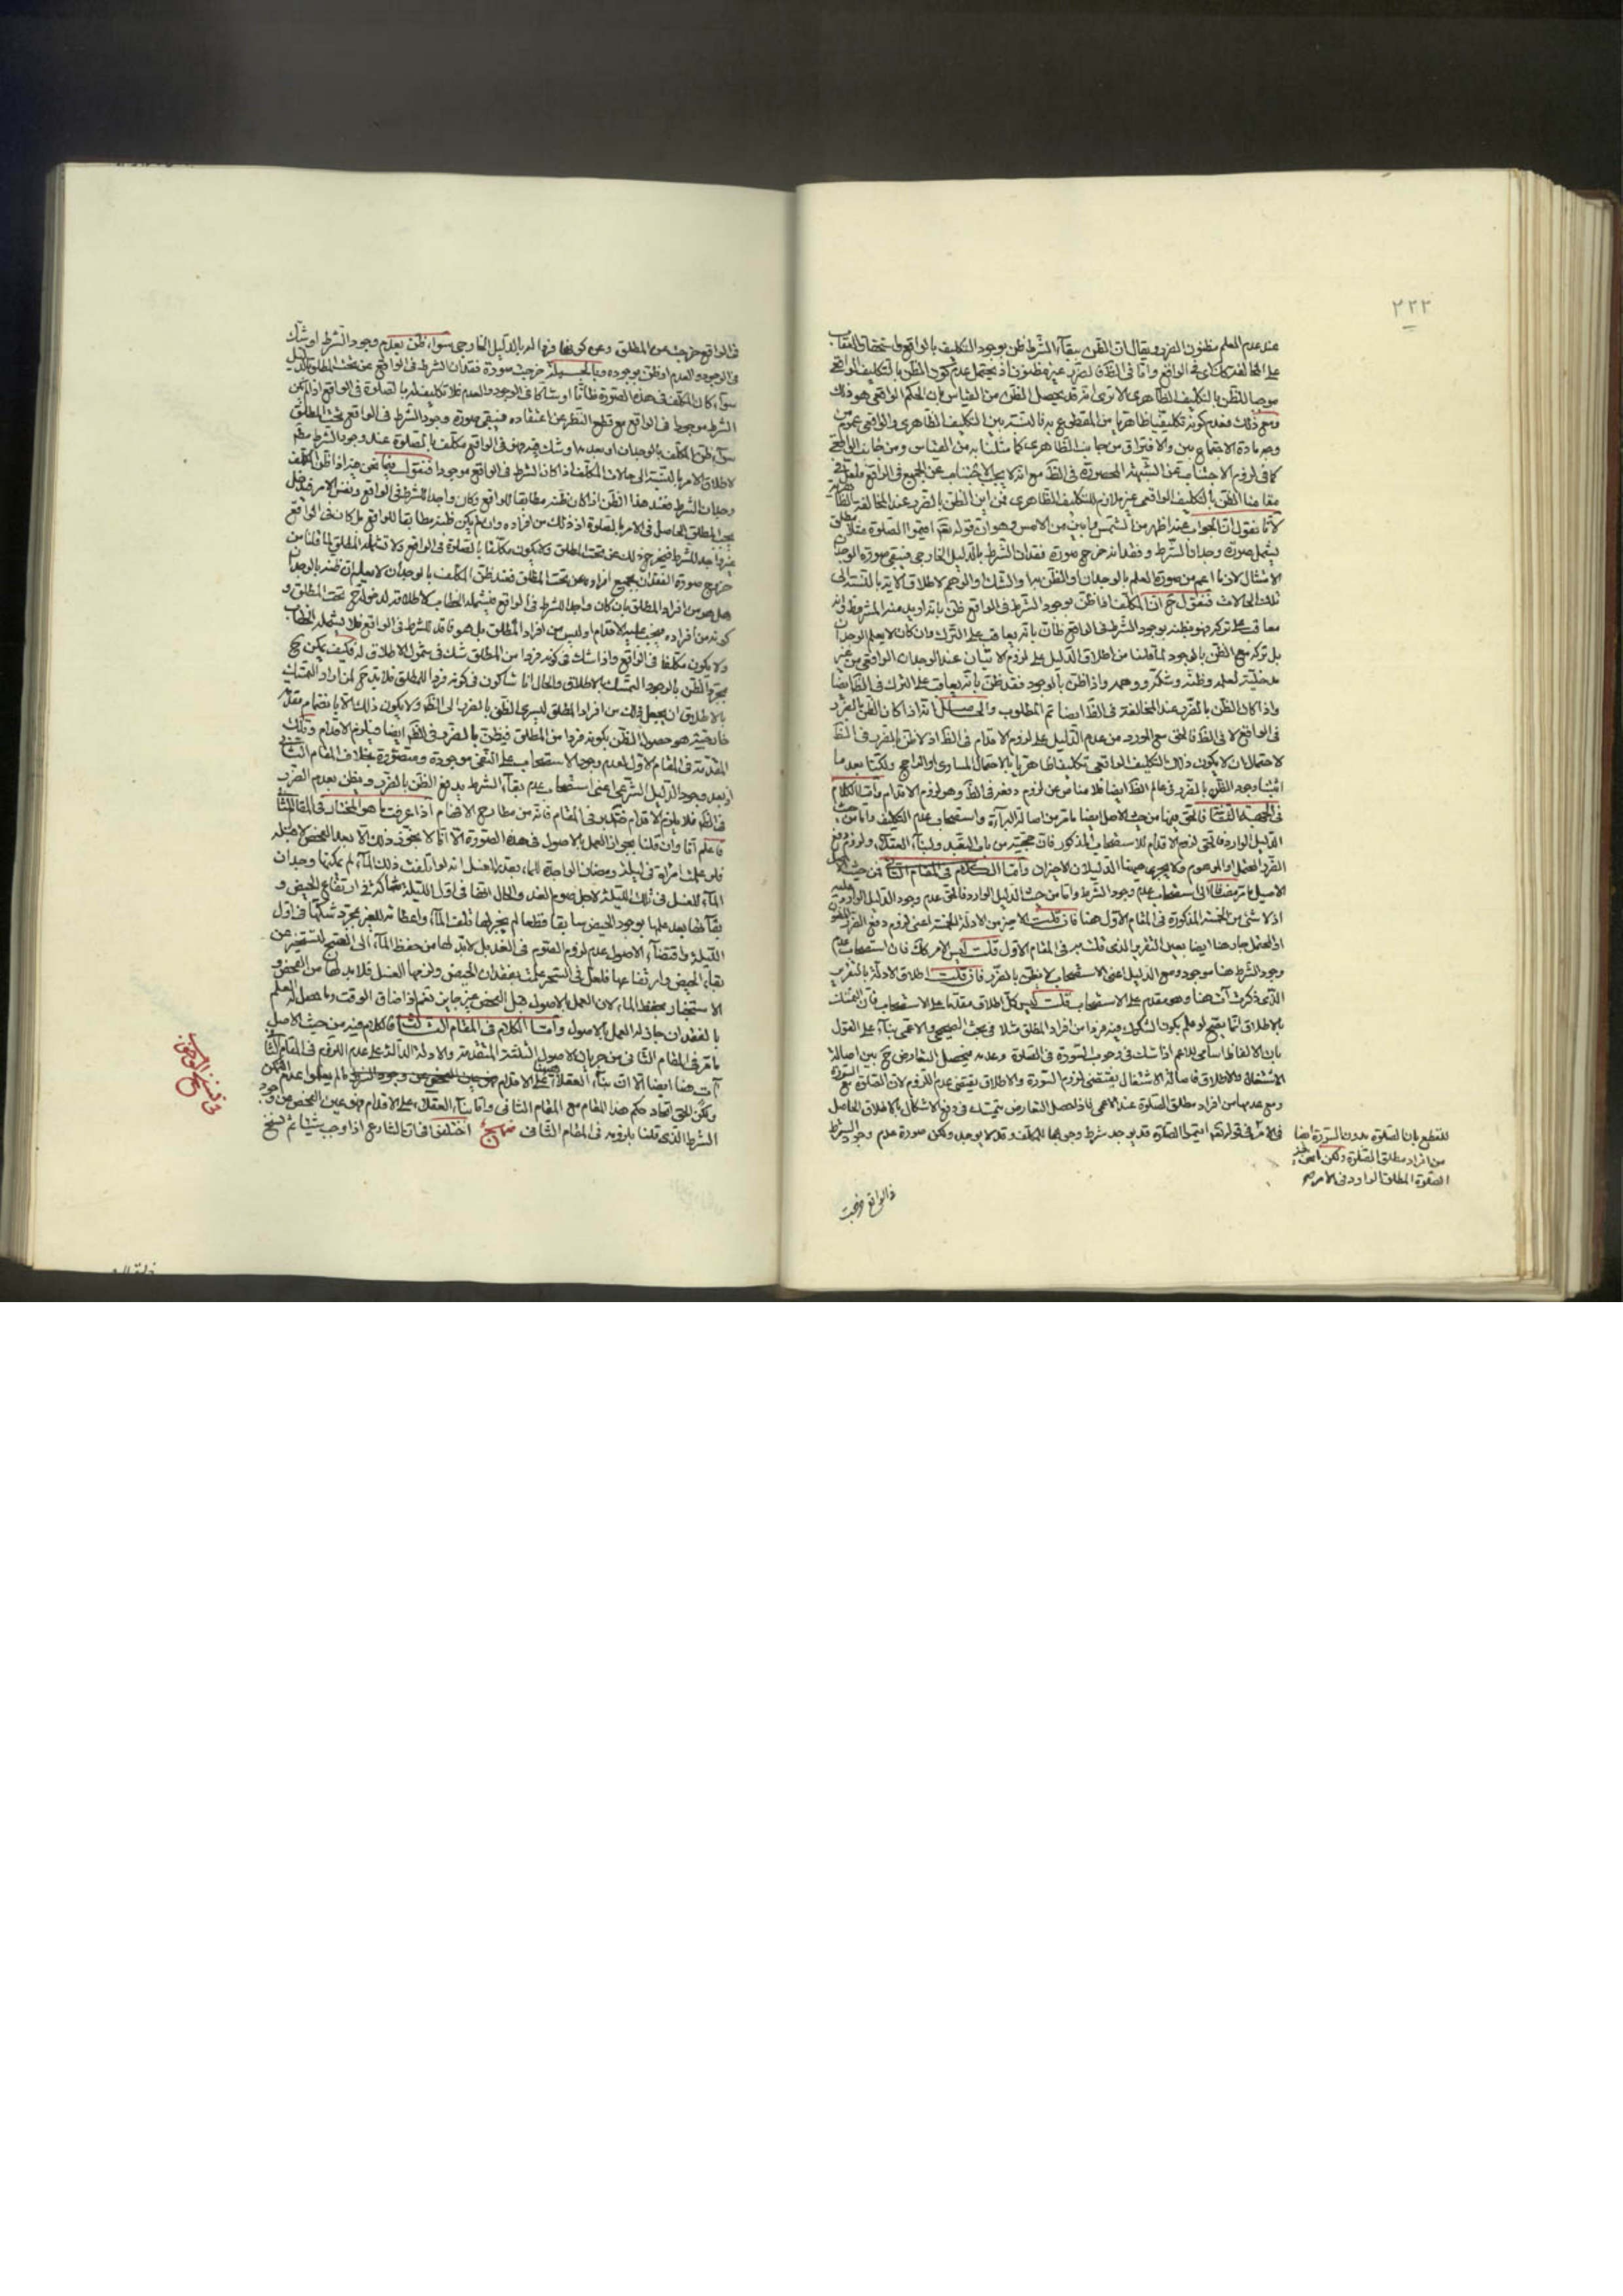 ٢٣٢
عند عدم العلم مظنون الضرر ويقال ان الظن ببقاء الشرط ظن بوجود التكليف بالواقع واستحقاق العقاب
على المخالفة
موجبا للظن بالتكليف الظاهرى الا ترى انه قد يحصل الظن من القياس بان الحكم الواقعى هو ذلك
ومع ذلك فعدم كونه تكليفا ظاهريا من المقطوع به فالنسبة بين التكليف الظاهرى والواقعى عموم من
وجه مادة الاجتماع بين والافتراق من جانب الظاهرى كما مثلنا به من القياس ومن جانب الواقعى
كما فى لزوم الاجتناب عن الشبهة المحصورة
مقامنا الظن بالتكليف الواقعى غير ملازم للتكليف الظاهرى فمن اين الظن بالضرر عند المخالفة
لانا نقول ان الجواب عنه اظهر من الشمس وابين من الامس وهو ان قوله تعالى اقيموا الصلوة مثلا مطلق
يشمل صورة وجدان الشرط وفقدانه خرج صورة فقدان الشرط بالدليل الخارجى فيبقى صورة الوجدان
الامتثال لانها اعم من صورة العلم بالوجدان او الظن بها والشك والوهم لاطلاق الاية بالنسبة الى
تلك الحالات فنقول ح ان المكلف اذا ظن بوجود الشرط فى الواقع ظن بانه اريد منه المشروط وانه
معاقب على تركه فهو بظنه بوجود الشرط فى الواقع ظان بانه يعاقب على الترك وان كان لا يعلم الوجدان
بل تركه مع الظن بالوجود لما قلنا من اطلاق الدليل على لزوم الاتيان عند الوجدان الواقعى من غير
مدخلية لعلمه وظنه وشكه ووهمه واذا ظن بالوجود فقد ظن بانه يعاقب على الترك فى الظاهر ايضا
واذا كان الظن بالضرر عند المخالفة فى الظ ايضا تم المطلوب والحاصل انه اذا كان الظن بالضرر
فى الواقع لا فى الظ فالحق مع المورد من عدم الدليل على لزوم الاقدام فى الظ اذ لا ظن بالضرر فى الظ
لاحتمال ان لا يكون ذلك التكليف الواقعى تكليفا ظاهريا بالاحتمال المساوى او الراجح ولكنا بعد ما
اثبتنا وجود الظن بالضرر فى عالم الظ ايضا فلا مناص عن لزوم دفعه فى الظ وهو لزوم الاقدام واما الكلام
فى
الدليل الوارد فالحق لزوم الاقدام للاستصحاب المذكور فان حجيته من باب التعبد ولبناء العقلاء ولزوم دفع
الضرر المحتمل او الموهوم ولا يجرى هيهنا الدليلان الاخيران واما الكلام فى المقام الثانى فمن حيث الاصل
الاصل ما مر مضافا الى استصحاب عدم وجود الشرط واما من حيث الدليل الوارد فالحق عدم وجود الدليل الوارد عليه
اذ لا شئ من الخمسة المذكورة فى المقام الاول هنا فان قلت الاخير من الادلة الخمسة اعنى لزوم دفع الضرر المظنون
او المحتمل جار هنا ايضا بعين التقرير الذى قلت به فى المقام الاول قلت ليس الامر كك فان استصحاب عدم
وجود الشرط هنا موجود ومع الدليل اعنى الاستصحاب لا نظن بالضرر فان قلت اطلاق الادلة بالتقرير
الذى ذكرت آت هنا وهو مقدم على الاستصحاب قلت ليس كل اطلاق مقدما على الاستصحاب فان التمسك
بالاطلاق انما يصح لو علم بكون المشكوك فيه فردا من افراد المطلق مثلا فى بحث الصحيح والاعم بناء على القول
بان الالفاظ اسامى للاعم اذا شك فى وجوب السورة فى الصلوة وعدمه فيحصل التعارض ح بين اصالة
الاشتغال والاطلاق فاصالة الاشتغال يقتضى لزوم السورة والاطلاق يقتضى عدم اللزوم لان الصلوة مع السورة
ومع عدمها من افراد مطلق الصلوة عند الاعمى فاذا حصل التعارض يتمسك فى دفع الاشكال بالاطلاق الحاصل
فى الامر فى قوله تعالى اقيموا الصلوة قد يوجد شرط وجوبها للمكلف وقد لا يوجد ولكن صورة عدم وجود الشرط
للقطع بان الصلوة بدون السورة ايضا
من افراد مطلق الصلوة ولكن
الصلوة المطلق الوارد فى الامر صح
فى الواقع خرجت
فى الواقع خرجت عن المطلق وعن كونها فردا له بالدليل الخارجى سواء ظن بعدم وجود الشرط او شك
فى الوجود والعدم او ظن بوجوده وبالجملة خرجت صورة فقدان الشرط فى الواقع عن تحت المطلق بالدليل
سواء كان المكلف فى هذه الصورة ظانا او شاكا فى الوجود والعدم فلا تكليف له بالصلوة فى الواقع اذا لم يكن
الشرط موجودا فى الواقع مع قطع النظر عن اعتقاده فيبقى صورة وجود الشرط فى الواقع تحت المطلق
سواء ظن المكلف بالوجدان او بعدمه او شك فيه فهو فى الواقع مكلف بالصلوة عند وجود الشرط مطلقا
لاطلاق الامر بالنسبة الى حالات المكلف اذا كان الشرط فى الواقع موجودا فنقول فيما نحن فيه اذا ظن المكلف
وجدان الشرط فعند هذا الظن اذا كان ظنه مطابقا للواقع وكان واجدا للشرط فى الواقع ونفس الامر فيدخل
تحت المطلق الحاصل فى الامر بالصلوة اذ ذلك من افراده وان لم يكن ظنه مطابقا للواقع بل كان فى الواقع
غير واجد للشرط فيخرج ذلك عن تحت المطلق ولا يكون مكلفا بالصلوة فى الواقع ولا تشمله المطلق لما قلنا من
خروج صورة الفقدان بجميع افراده عن تحت المطلق فعند ظن المكلف بالوجدان لا يعلم ان ظنه بالوجدان
هل هو من افراد المطلق بان كان واجدا للشرط فى الواقع فيشمله الخطاب لاطلاقه لدخوله ح تحت المطلق و
كونه من افراده فيجب عليه الاقدام او ليس من افراد المطلق بل هو فاقد للشرط فى الواقع فلا يشمله الخطاب
ولا يكون مكلفا فى الواقع واذا شك فى كونه فردا من المطلق شك فى شمول الاطلاق له فكيف يمكن ح
بمجرد الظن بالوجود التمسك بالاطلاق والحال انا شاكون فى كونه فردا للمطلق فلا بد ح لمن اراد التمسك
بالاطلاق ان يجعل ذلك من افراد المطلق ليسرى الظن بالضرر الى الظ ولا يكون ذلك الا بانضمام مقدمة
خارجية هو حصول الظن بكونه فردا من المطلق فيظن بالضرر فى الظ ايضا فيلزم الاقدام وتلك
المقدمة فى المقام الاول لعدم وجود الاستصحاب على النفى موجودة ومتصورة بخلاف المقام الثانى
اذ بعد وجود الدليل الشرعى اعنى استصحاب عدم بقاء الشرط يدفع الظن بالضرر ويظن بعدم الضرر
فى الظ فلا يلزم الاقدام فتدبر فى المقام فانه من مطارح الافهام اذا عرفت ما هو المختار فى المقام الثانى
فاعلم انا وان قلنا بجواز العمل بالاصول فى هذه الصورة الا انا لا نجوز ذلك الا بعد الفحص
فلو علمت امراة فى ليلة رمضان الواجدة للماء بقدر الغسل انه لو اتلفت ذلك الماء لم يمكنها وجدان
الماء للغسل فى تلك الليلة لاجل صوم الغد والحال انها فى اول الليلة شاكة فى ارتفاع الحيض و
بقائها بعد علمها بوجود الحيض سابقا فقطعا لم يجز لها تلف الماء واعطائه للغير بمجرد شكها فى اول
الليلة واقتضاء الاصول عدم لزوم الصوم فى الغد بل لا بد لها من حفظ الماء الى الصبح لتستخبر عن
بقاء الحيض وارتفاعها فلعل فى السحر علمت بفقدان الحيض ولزمها الغسل فلا بد لها من الفحص و
الاستخبار بحفظ الماء لان العمل بالاصول قبل الفحص غير جايز نعم لو اضاق الوقت وما حصل له العلم
بالفقدان جاز له العمل بالاصول واما الكلام فى المقام الثالث فالكلام فيه من حيث الاصل
ما مر فى المقام الثانى من جريان الاصول الثلثة المتقدمة والادلة الدالة على عدم اللزوم فى المقام الثانى
آت هنا ايضا الا ان بناء العقلاء هنا على الاقدام
ولكن الحق اتحاد حكم هذا المقام مع المقام الثانى واما بناء العقلاء على الاقدام فهو عين الفحص عن وجود
الشرط الذى قلنا بلزومه فى المقام الثانى منهج اختلفوا فى ان الشارع اذا اوجب شيئا ثم نسخ
فى نسخ الوجوب